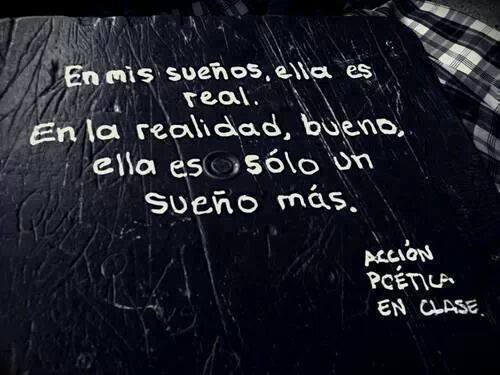 En mis sueños, ella es
real.
En la realidad, bueno,
ella es sólo un
sueño más.
ACCIÓN
POÉTICA
EN CLASE.